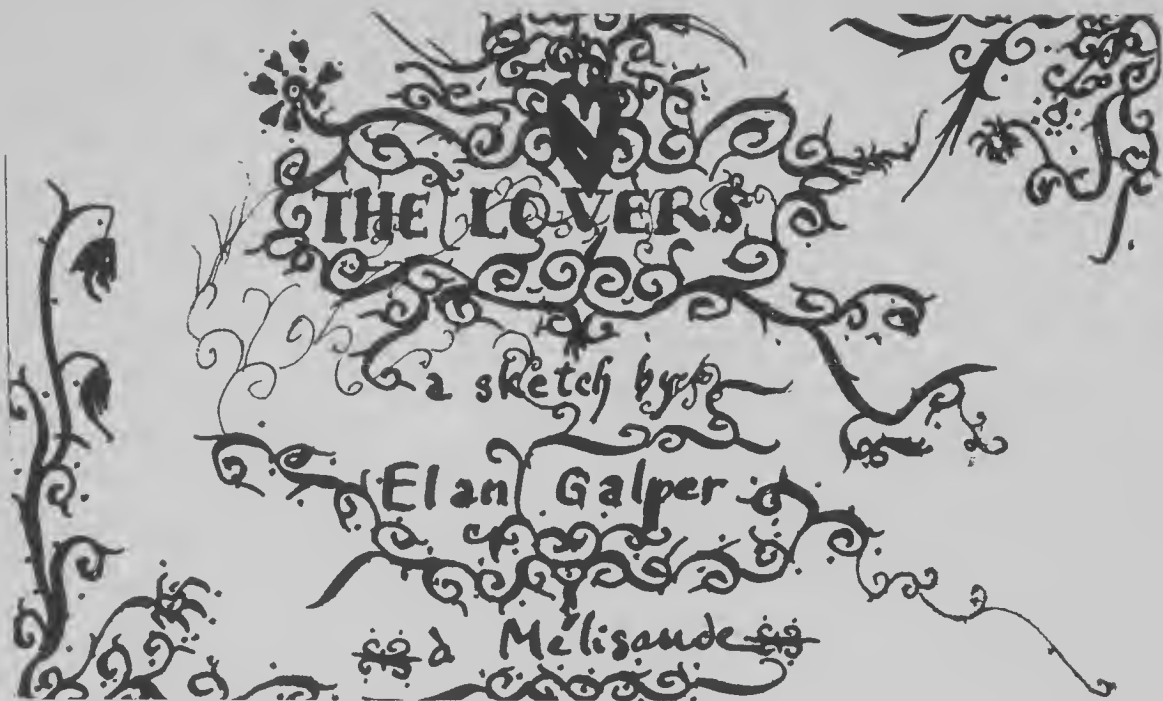 THE LOVERS
a sketch by
Elan Galper
à Mélisande